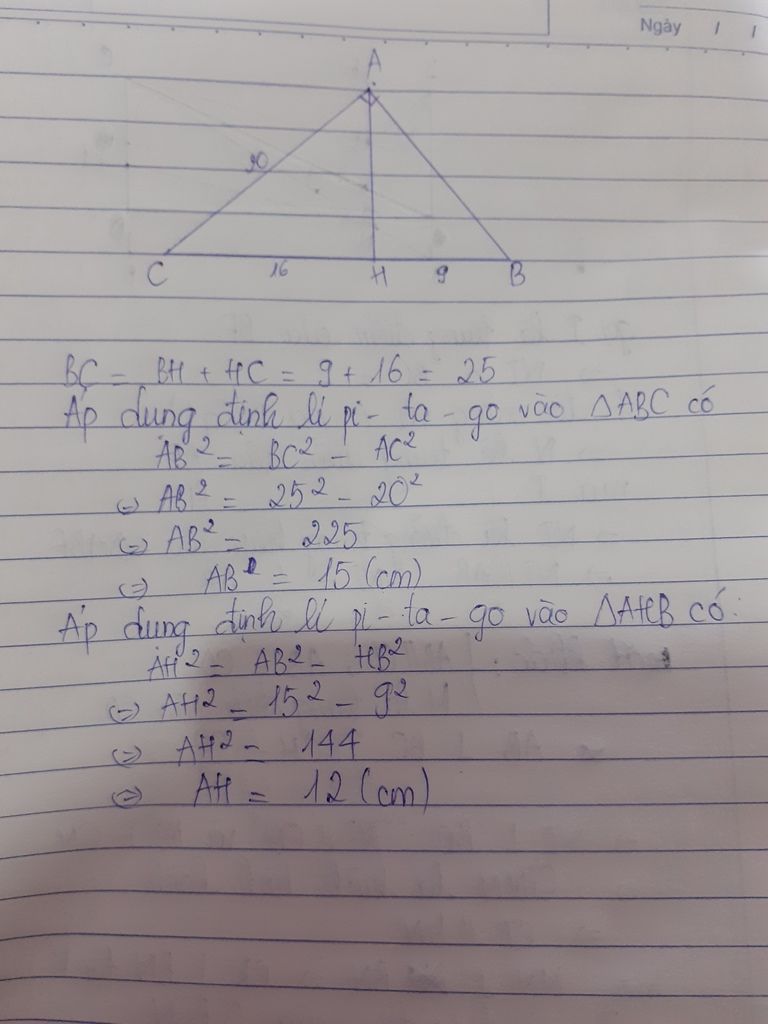 Ngày / /
A
20
C 16 H 9 B
BC = BH + HC = 9 + 16 = 25
Áp dung định lí pi-ta-go vào ΔABC có
AB² = BC² - AC²
(=) AB² = 25² - 20²
(=) AB² = 225
(=) AB = 15 (cm)
Áp dung định lí pi-ta-go vào ΔAHB có:
AH² = AB² - HB²
(=) AH² = 15² - 9²
(=) AH² = 144
(=) AH = 12 (cm)